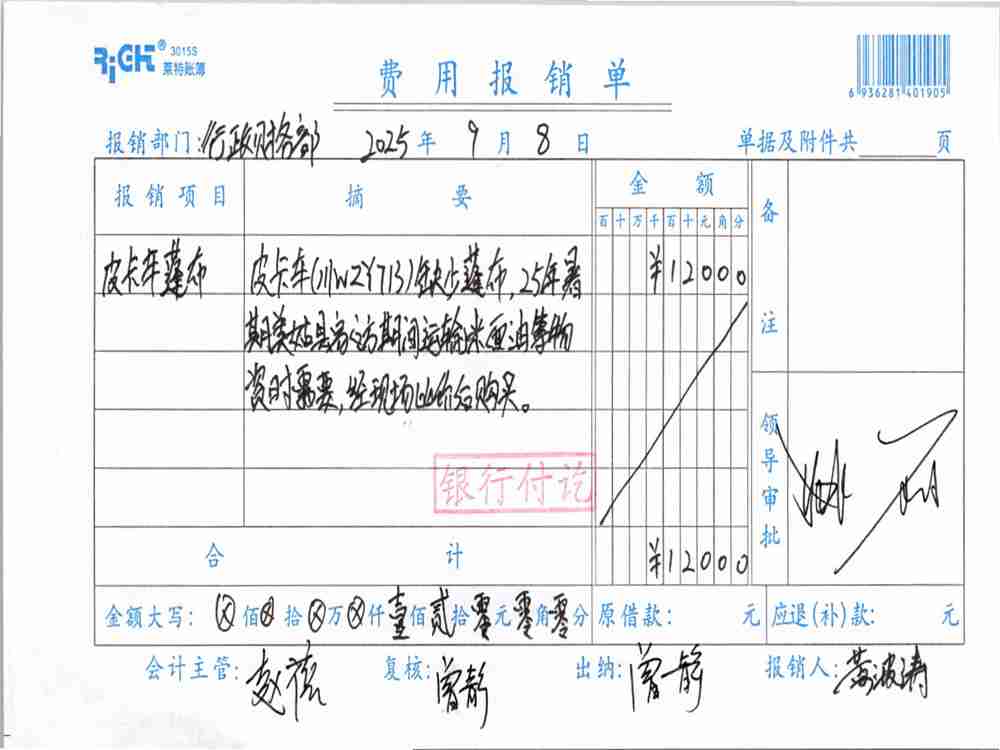 RiGHT® 3015S
莱特账簿
费用报销单
6 936281 401905
报销部门:行政财务部 2025年9月8日 单据及附件共 页
报销项目 摘要 金额 备注
百十万千百十元角分
皮卡车蓬布 皮卡车(川WZY713)缺少蓬布,25年暑 ¥12000
期美姑县家访期间运输米面油等物
资时需要,经现场比价后购买。
银行付讫
领导审批
合计 ¥12000
金额大写: ⊗佰⊗拾⊗万⊗仟壹佰贰拾零元零角零分 原借款: 元 应退(补)款: 元
会计主管: 复核:曾静 出纳:曾静 报销人: